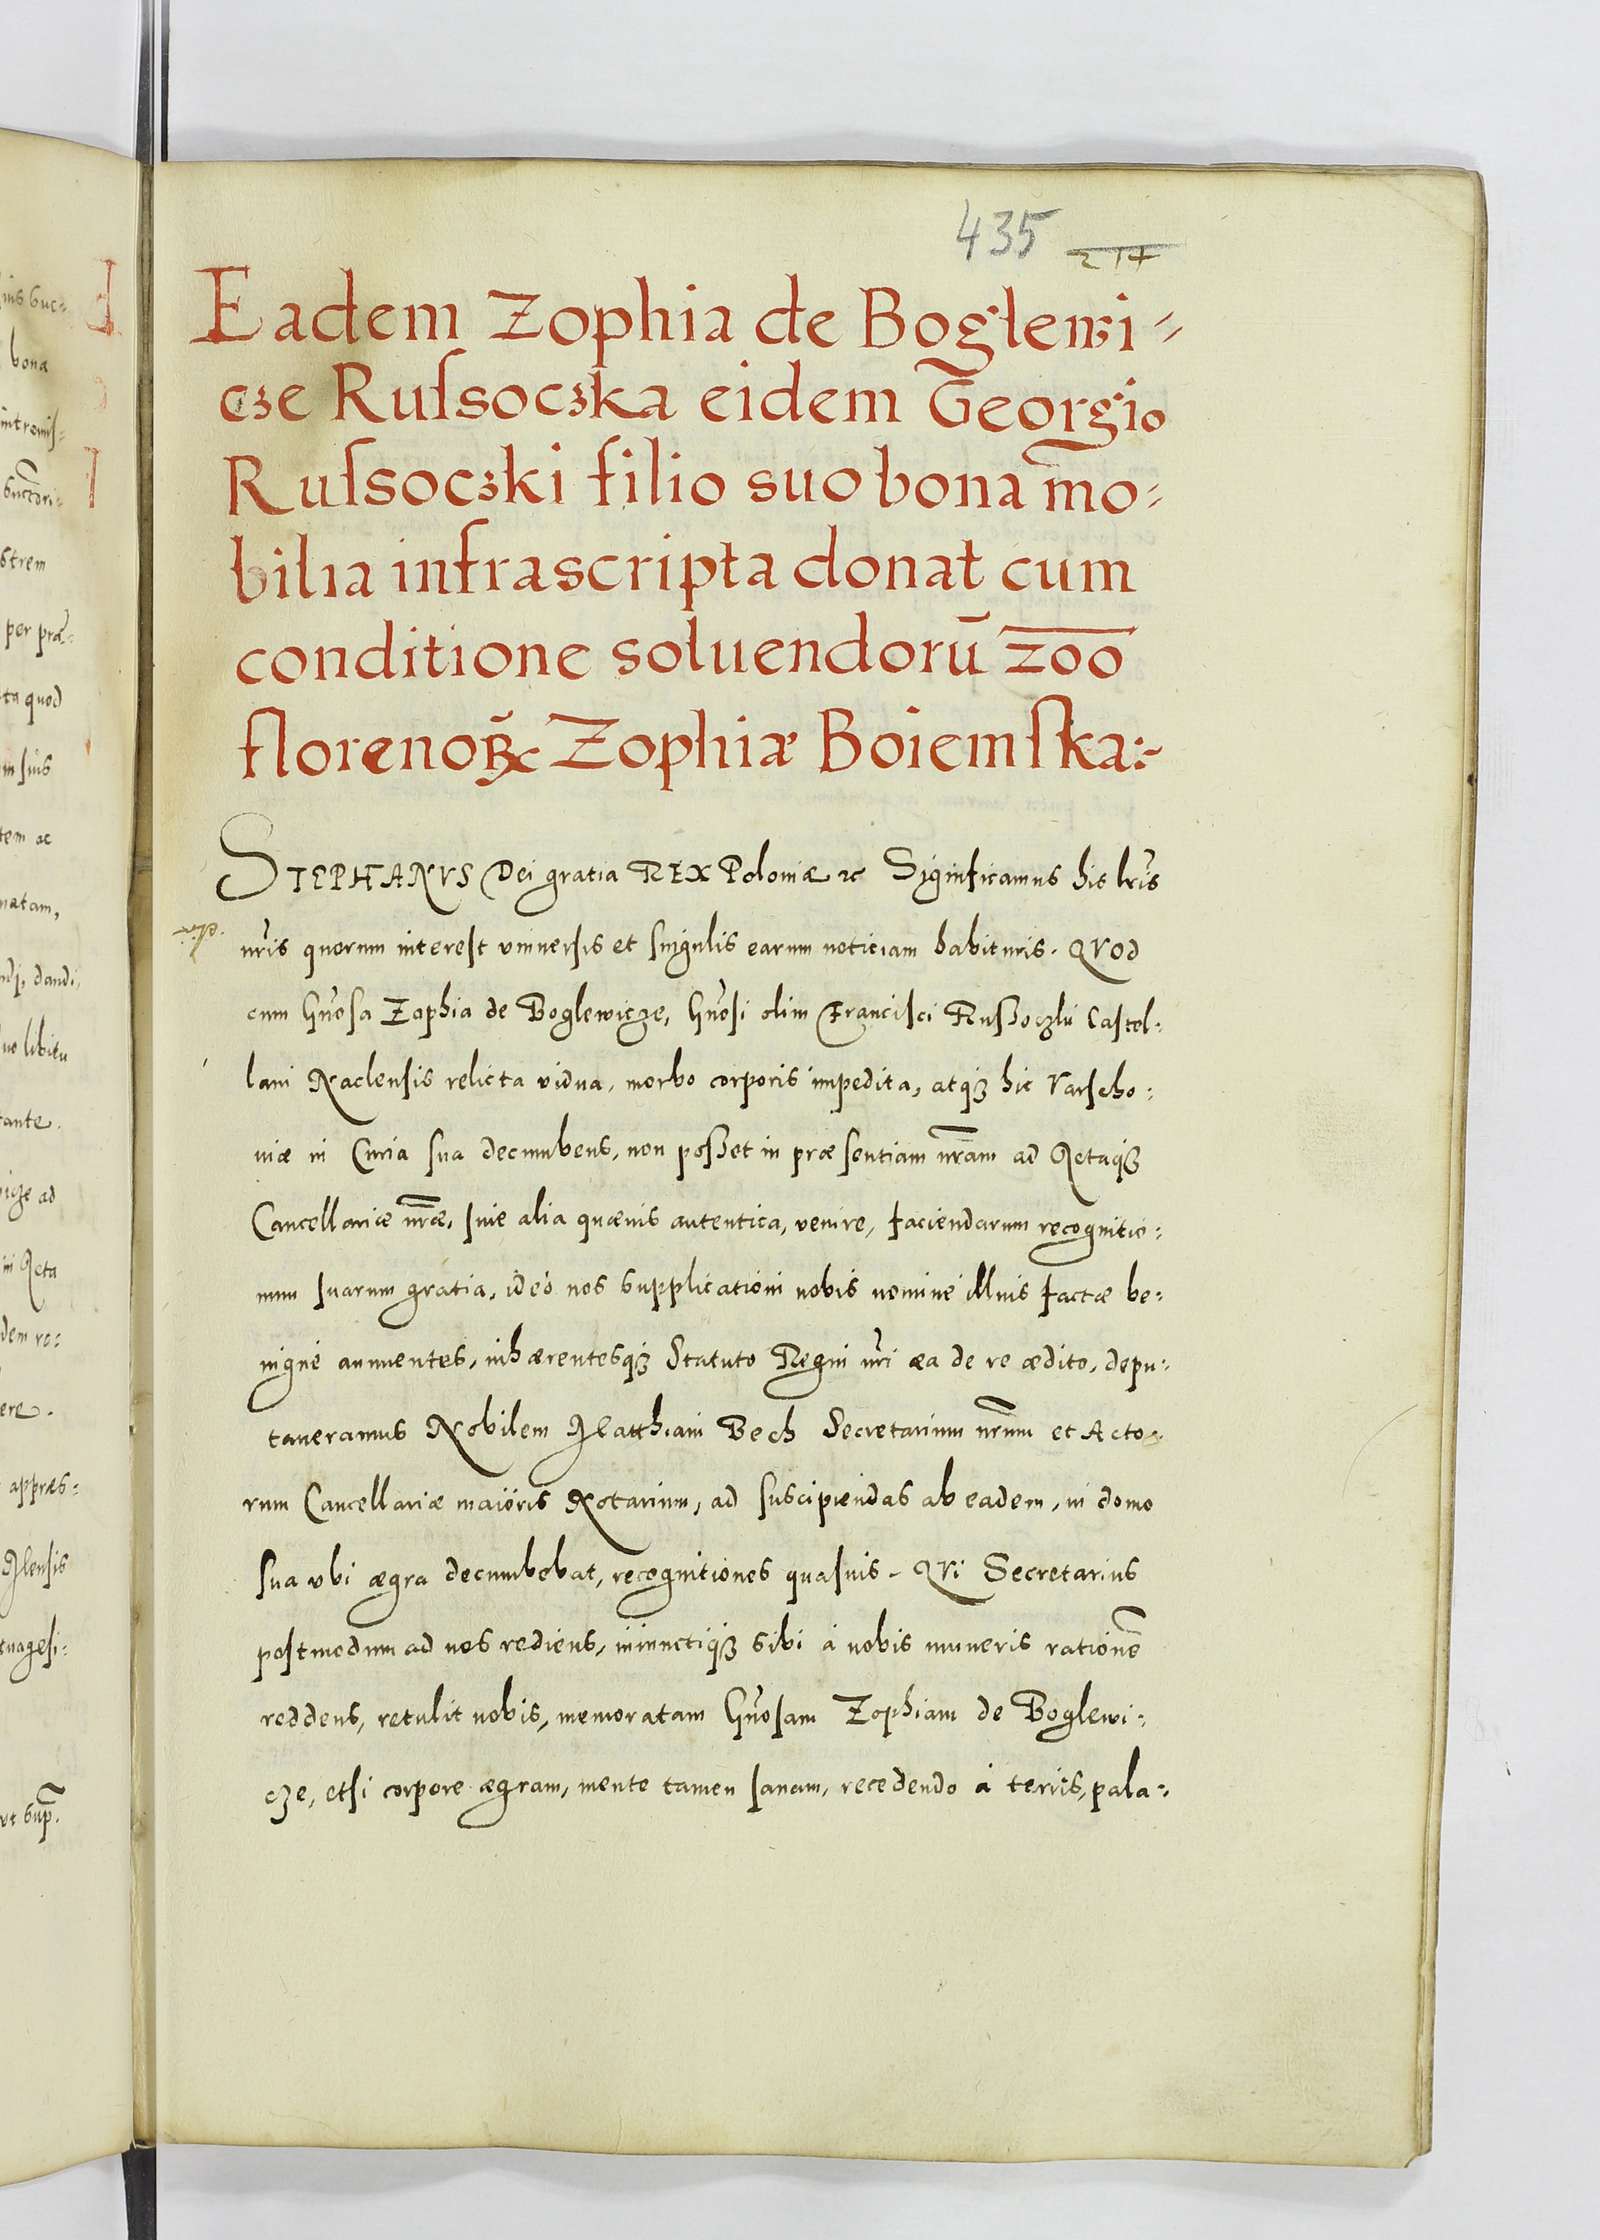 435
Eadem Zophia de Boglewi-
cze Russoczka eidem Georgio
Russoczki filio suo bona mo-
bilia infrascripta donat cum
conditione soluendorū 200
florenoꝝ Zophiæ Boiemska:-
STEPHANVS Dei gratia REX Poloniæ ꝛc Significamus his lr̃is
nr̃is quorum interest vniuersis et singulis earum noticiam habituris. QVOD
cum Gñosa Zophia de Boglewicze, Gñosi olim Francisci Russoczki Castel-
lani Naclensis relicta vidua, morbo corporis impedita, atqꝫ hic Varscho-
uiæ in Curia sua decumbens, non posset in præsentiam nr̃am ad Actaqꝫ
Cancellariæ nr̃æ, siue alia quæuis autentica, venire, faciendarum recognitio-
num suarum gratia, ideò nos supplicationi nobis nomine illius factæ be-
nignè annuentes, inhærentesqꝫ Statuto Regni nr̃i æa de re ædito, depu-
taueramus Nobilem Matthiam Bech Secretarium nr̃um et Acto-
rum Cancellariæ maioris Notarium, ad suscipiendas ab eadem, in domo
sua vbi ægra decumbebat, recognitiones quasuis. QVi Secretarius
postmodum ad nos rediens, iniunctiqꝫ sibi à nobis muneris rationē
reddens, retulit nobis, memoratam Gñosam Zophiam de Boglewi-
cze, etsi corpore ægram, mente tamen sanam, recedendo à terris, pala-
bona
strem
per præ-
ta quod
tem ac
natam,
dandi,
uo libitu
in Acta
ere.
appres-